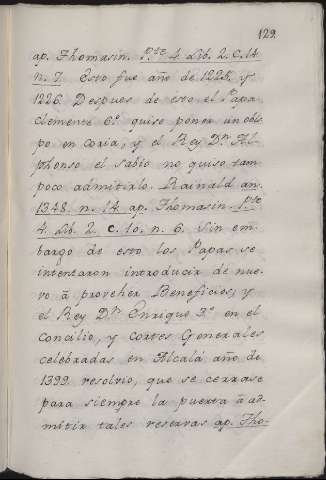 129.
ap. Thomasin. P.te 4. Lib. 2. C. 14
n. 7. Esto fue año de 1225. y
1226. Despues de esto el Papa
Clemente 6.º quiso poner un obis-
po en Coria, y el Rey D.n Al-
phonso el sabio no quiso tam-
poco admitirlo. Rainald an.
1348. n. 14. ap. Thomasin. P.te
4. Lib. 2. c. 10. n. 6. Sin em-
bargo de esto los Papas se
intentaron introducir de nue-
vo â proveher Beneficios, y
el Rey D.n Enrique 3.º en el
Concilio, y Cortes Generales
celebradas en Alcalá año de
1399. resolvio, que se cerrase
para siempre la puerta â ad-
mitir tales reservas ap. Tho-